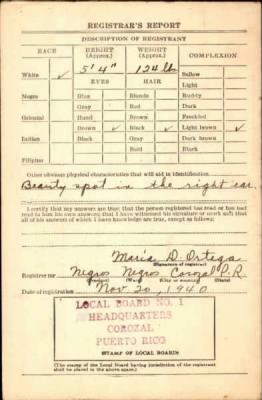 REGISTRAR'S REPORT
DESCRIPTION OF REGISTRANT
RACE HEIGHT (Approx.) WEIGHT (Approx.) COMPLEXION
White ✓ 5' 4" 124 lbs Sallow
EYES HAIR Light
Negro Blue Blonde Ruddy
Gray Red Dark
Oriental Hazel Brown Freckled
Brown ✓ Black ✓ Light brown ✓
Indian Black Gray Dark brown
Bald Black
Filipino
Other obvious physical characteristics that will aid in identification
Beauty spot in the right ear.
I certify that my answers are true; that the person registered has read or has had
read to him his own answers; that I have witnessed his signature or mark and that
all of his answers of which I have knowledge are true, except as follows:
Maria D. Ortega
(Signature of registrar)
Registrar for Negros Negros Corozal P.R.
(Precinct) (Ward) (City or county) (State)
Date of registration Nov. 20, 1940
LOCAL BOARD NO. 1
HEADQUARTERS
COROZAL
PUERTO RICO
(STAMP OF LOCAL BOARD)
(The stamp of the Local Board having jurisdiction of the registrant
shall be placed in the above space.)